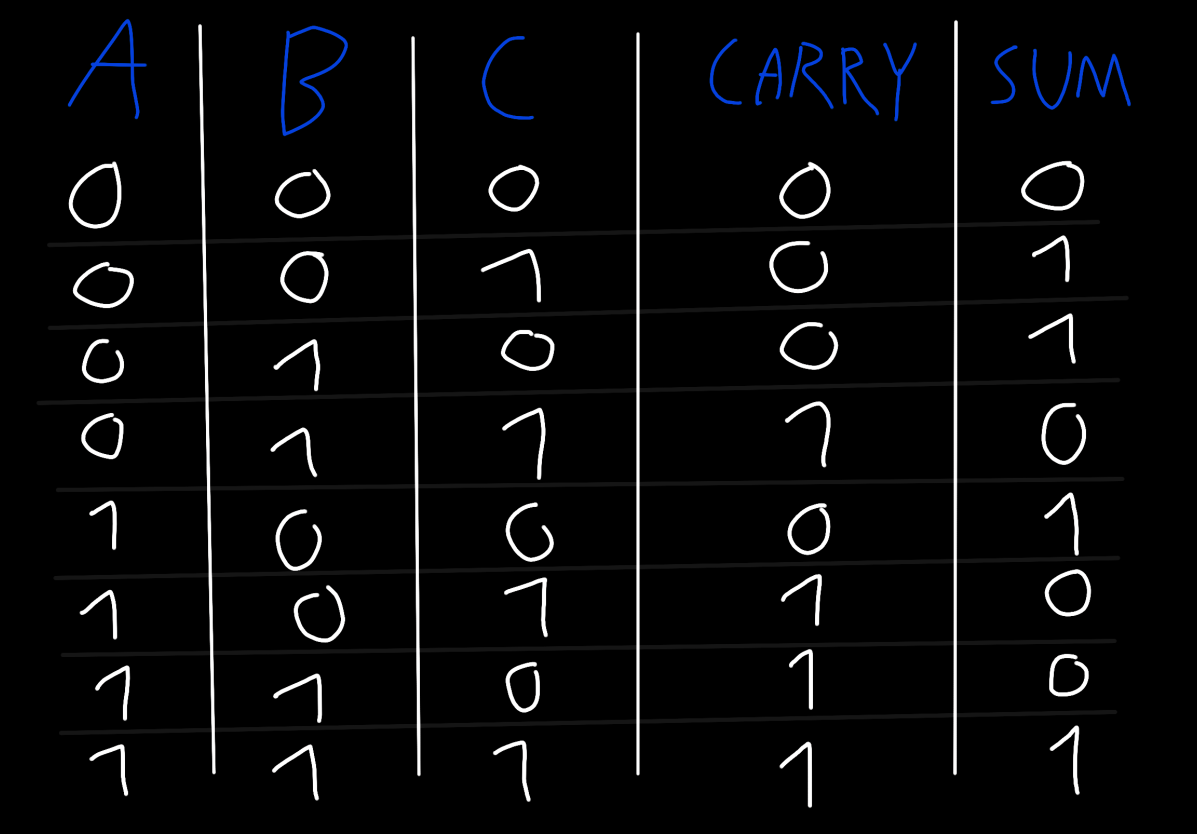 A B C CARRY SUM
0 0 0 0 0
0 0 1 0 1
0 1 0 0 1
0 1 1 1 0
1 0 0 0 1
1 0 1 1 0
1 1 0 1 0
1 1 1 1 1